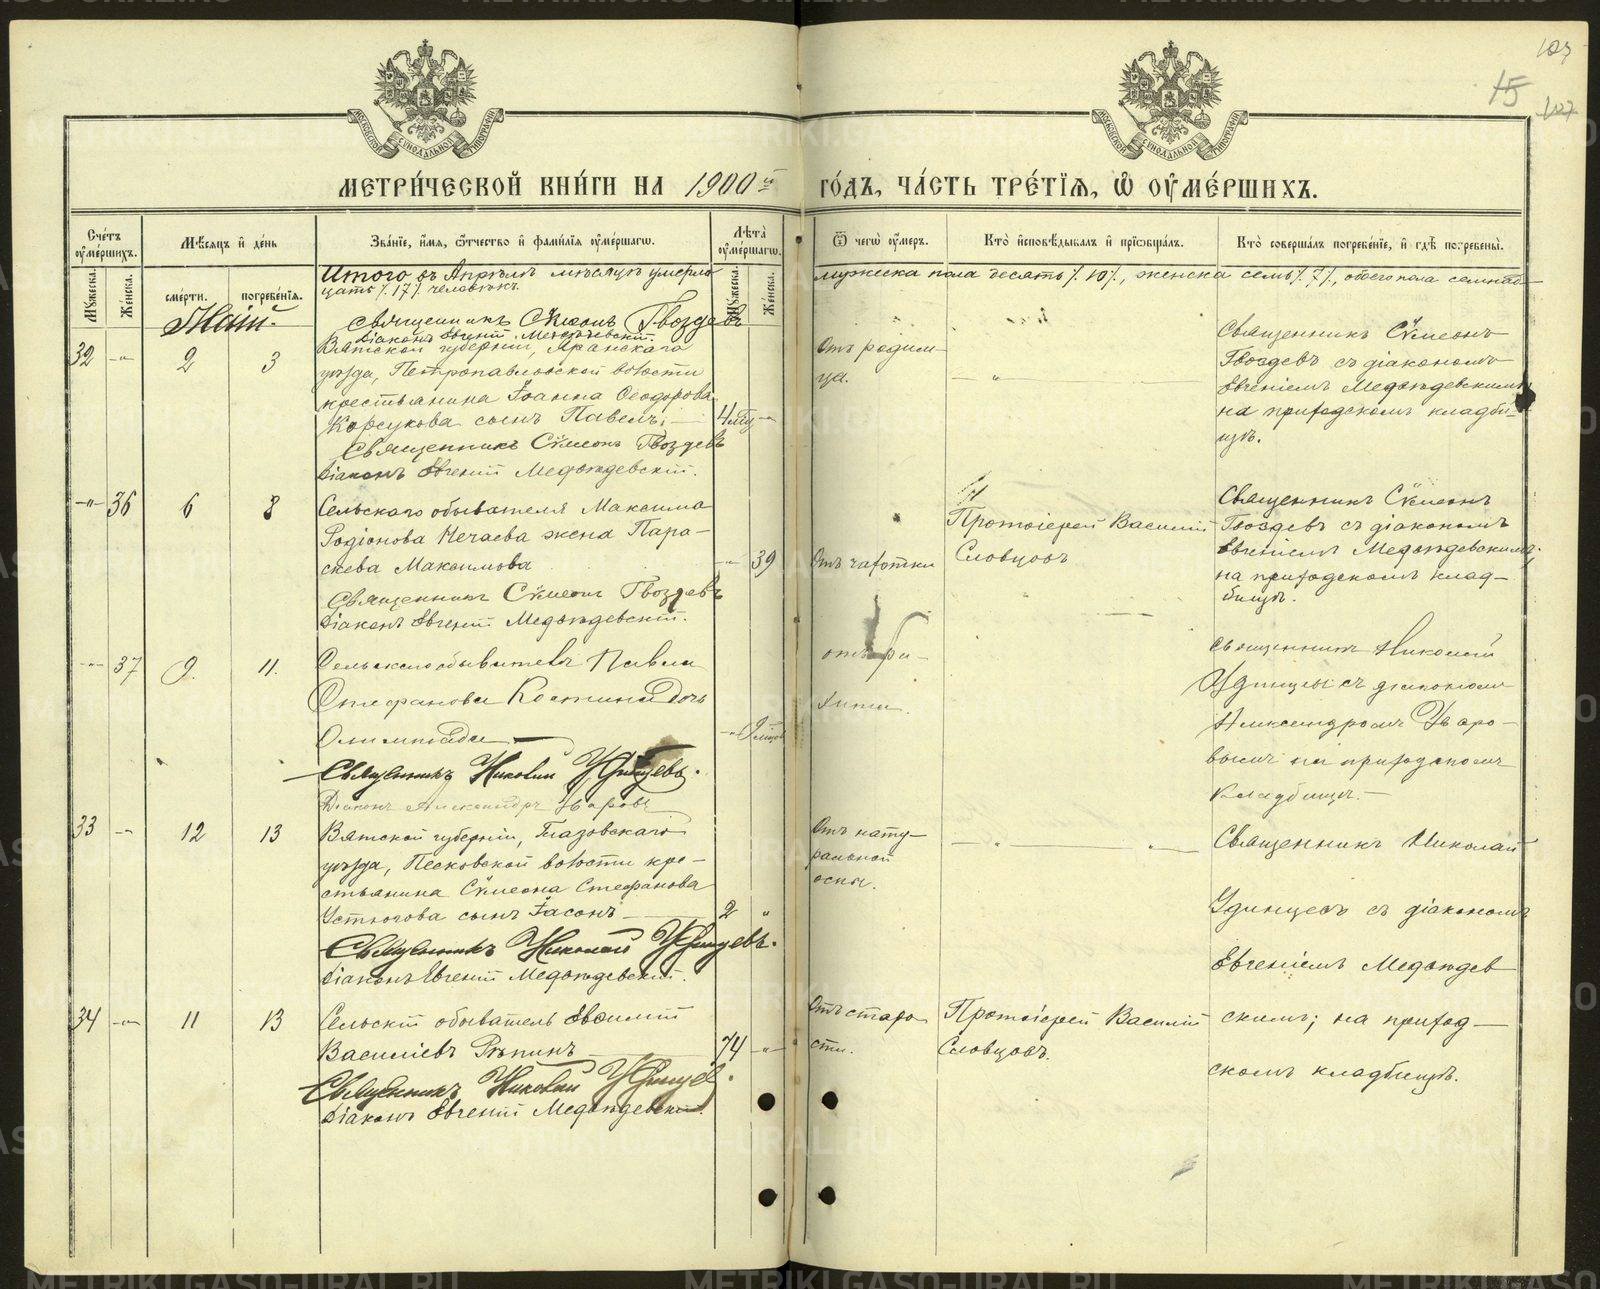 107
15
107
МЕТРИ́ЧЕСКОЙ КНИ́ГИ НА 1900й ГО́ДЪ, ЧА́СТЬ ТРЕ́ТІѦ, Ѡ҆ ОУМЕ́РШИХЪ.
Сче́тъ оуме́ршихъ.
Мѣ́сяцъ и҆ де́нь
Зва́нїе, и҆́мѧ, ѻ҆́тчество и҆ фами́лїѧ оуме́ршагѡ.
Лѣ́та оуме́ршагѡ.
Ѿ чегѡ̀ оу́меръ.
Кто̀ и҆сповѣ́дывалъ и҆ прїѡбща́лъ.
Кто̀ соверша́лъ погребе́нїе, и҆ гдѣ̀ погребены̀.
Мꙋ́жеска.
Же́нска.
сме́рти.
погребе́нїѧ.
Мꙋ́жеска.
Же́нска.
Итого въ Апрѣлѣ мѣсяцѣ умерло мужеска пола десять /. 10 /., женска семь /. 7 /., обоего пола семнад-
цать /. 17 /. человѣкъ.
Священникъ Сѵмеонъ Гвоздевъ
Діаконъ Евгеній Медвѣдевскій.
Май.
32 -„- 2 3
Вятской губерніи, Яранскаго
уѣзда, Петропавловской волости
крестьянина Іоанна Ѳеодорова
Корсукова сынъ Павелъ;
4 мѣс. -„-
Священникъ Сѵмеонъ Гвоздевъ
Діаконъ Евгеній Медвѣдевскій.
Отъ родим-
ца.
-„-
Священникъ Сѵмеонъ
Гвоздевъ съ діакономъ
Евгеніемъ Медвѣдевскимъ,
на приходскомъ кладби-
щѣ.
-„- 36 6 8
Сельскаго обывателя Максима
Родіонова Нечаева жена Пара-
скева Максимова
-„- 39
Священникъ Сѵмеонъ Гвоздевъ
Діаконъ Евгеній Медвѣдевскій.
Отъ чахотки
Протоіерей Василій
Словцовъ
Священникъ Сѵмеонъ
Гвоздевъ съ діакономъ
Евгеніемъ Медвѣдевскимъ,
на приходскомъ клад-
бищѣ.
-„- 37 9. 11.
Сельскаго обывателя Павла
Стефанова Костина дочь
Олимпіада
-„- 9 мѣсяц.
Священникъ Николай Удинцевъ.
Діаконъ Александръ Уваровъ
отъ ра-
хита.
Священникъ Николай
Удинцевъ съ діакономъ
Александромъ Уваро-
вымъ на приходскомъ
кладбищѣ.-
33 -„- 12 13
Вятской губерніи, Глазовскаго
уѣзда, Песковской волости кре-
стьянина Сѵмеона Стефанова
Устюгова сынъ Іасонъ
2 „
Священникъ Николай Удинцевъ.
Діаконъ Евгеній Медвѣдевскій.
Отъ нату-
ральной
оспы.
-„- -„-
Священникъ Николай
Удинцевъ съ діакономъ
Евгеніемъ Медвѣдев
скимъ; на приход-
скомъ кладбищѣ.
34 -„- 11 13
Сельскій обыватель Евѳимій
Василіевъ Рѣпинъ
74 -„-
Священникъ Николай Удинцев.
Діаконъ Евгеній Медвѣдевскій.
Отъ старо
сти.
Протоіерей Василій
Словцовъ.
METRIKI.GASO-URAL.RU